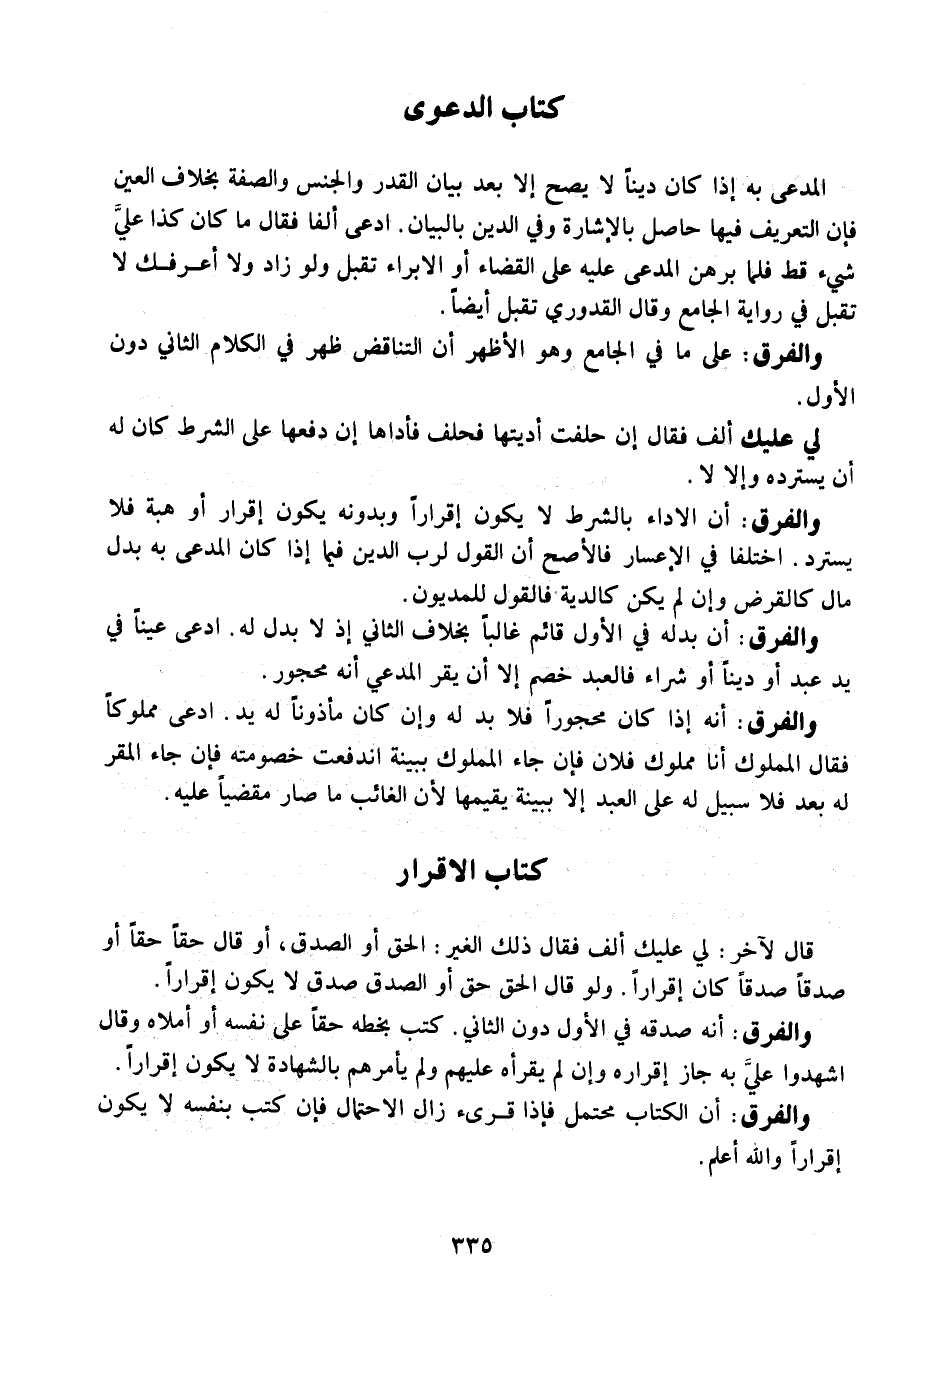 كتاب الدعوى
المدعى به إذا كان ديناً لا يصح إلا بعد بيان القدر والجنس والصفة بخلاف العين
فإن التعريف فيها حاصل بالإشارة وفي الدين بالبيان. ادعى ألفا فقال ما كان كذا عليَّ
شيء قط فلما برهن المدعى عليه على القضاء أو الابراء تقبل ولو زاد ولا أعرفك لا
تقبل في رواية الجامع وقال القدوري تقبل أيضاً.
والفرق: على ما في الجامع وهو الأظهر أن التناقض ظهر في الكلام الثاني دون
الأول.
لي عليك ألف فقال إن حلفت أديتها فحلف فأداها إن دفعها على الشرط كان له
أن يسترده وإلا لا.
والفرق: أن الاداء بالشرط لا يكون إقراراً وبدونه يكون إقرار أو هبة فلا
يسترد. اختلفا في الإعسار فالأصح أن القول لرب الدين فيما إذا كان المدعى به بدل
مال كالقرض وإن لم يكن كالدية فالقول للمديون.
والفرق: أن بدله في الأول قائم غالباً بخلاف الثاني إذ لا بدل له. ادعى عيناً في
يد عبد أو ديناً أو شراء فالعبد خصم إلا أن يقر المدعي أنه محجور.
والفرق: أنه إذا كان محجوراً فلا بد له وإن كان مأذوناً له يد. ادعى مملوكاً
فقال المملوك أنا مملوك فلان فإن جاء المملوك ببينة اندفعت خصومته فإن جاء المقر
له بعد فلا سبيل له على العبد إلا ببينة يقيمها لأن الغائب ما صار مقضياً عليه.
كتاب الاقرار
قال لآخر: لي عليك ألف فقال ذلك الغير: الحق أو الصدق، أو قال حقاً حقاً أو
صدقاً صدقاً كان إقراراً. ولو قال الحق حق أو الصدق صدق لا يكون إقراراً.
والفرق: أنه صدقه في الأول دون الثاني. كتب بخطه حقاً على نفسه أو أملاه وقال
اشهدوا عليَّ به جاز إقراره وإن لم يقرأه عليهم ولم يأمرهم بالشهادة لا يكون إقراراً.
والفرق: أن الكتاب محتمل فإذا قرىء زال الاحتمال فإن كتب بنفسه لا يكون
إقراراً والله أعلم.
٣٣٥